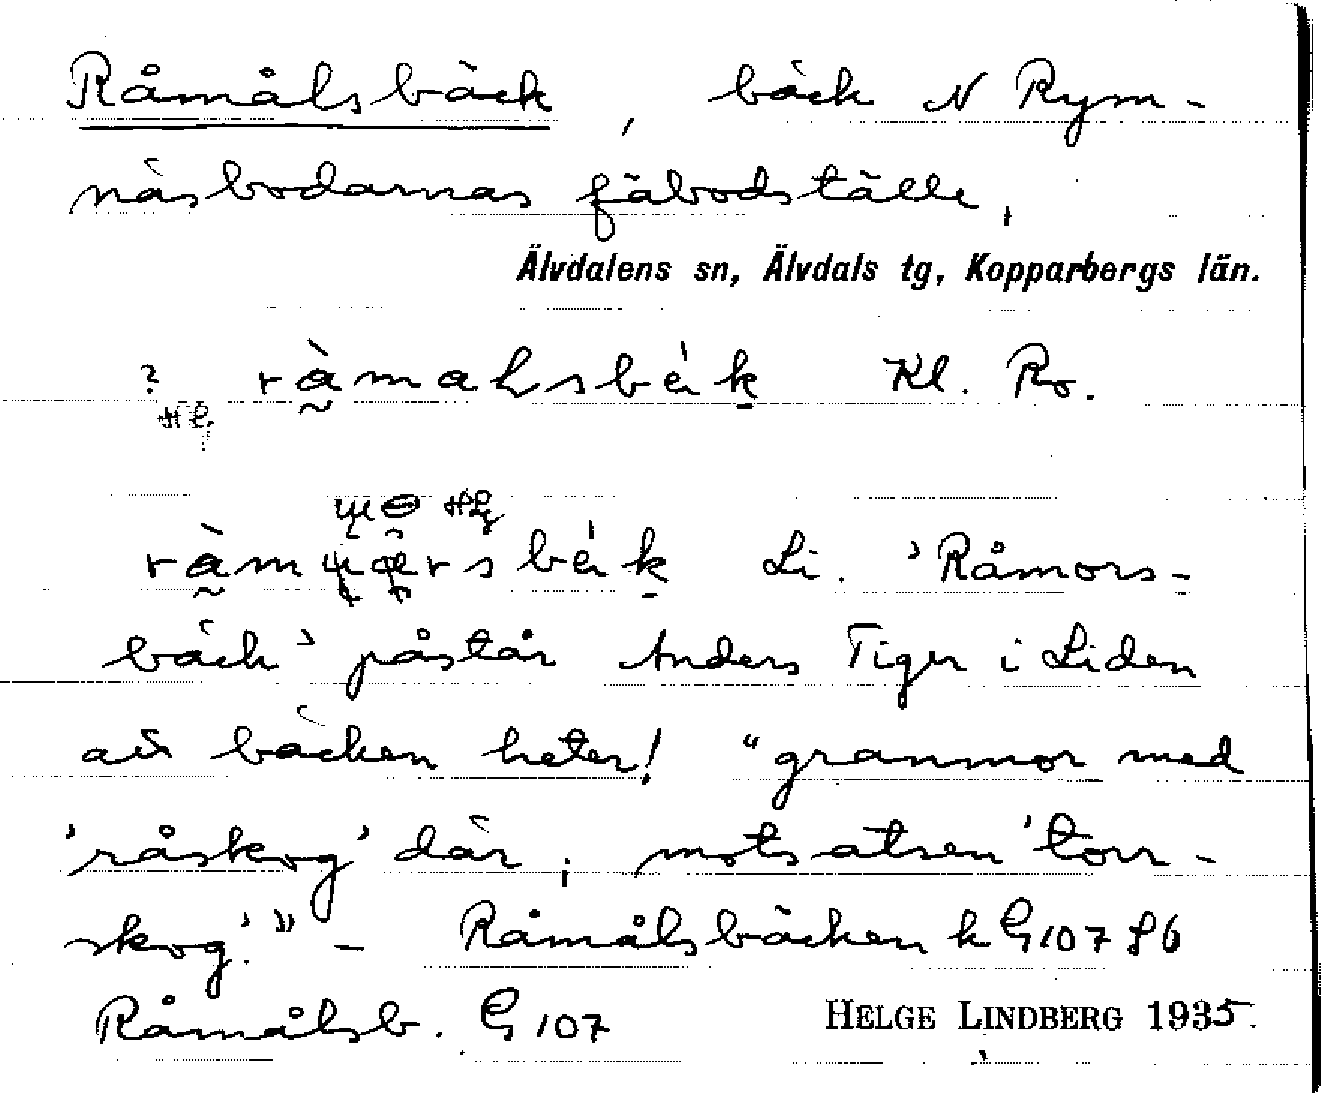 Råmålsbäck, bäck N Rym-
näsbodarnas fäbodställe,
Älvdalens sn, Älvdals tg, Kopparbergs län.
? ràmalsbék Kl. Ro.
HL
HL
Li. 'Råmors-
bäck' påstår Anders Tiger i Liden
att bäcken heter! "granmor med
'råskog' där, motsatsen 'torr-
skog'." - Råmålsbäcken k G107 S6
Råmålsb. G 107 HELGE LINDBERG 1935.